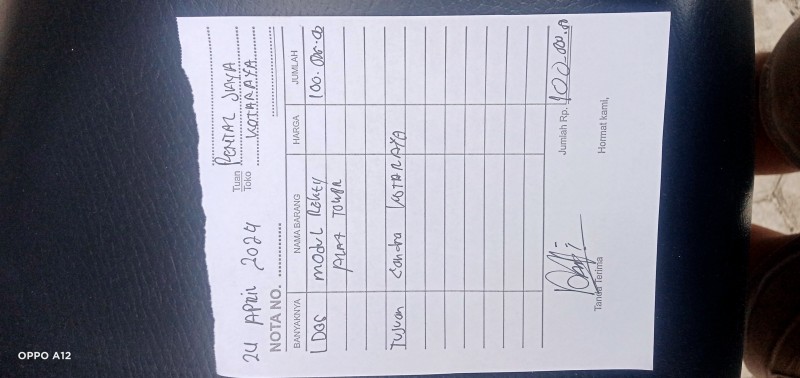 24 April 2024
Tuan
Toko
RENTAL JAYA
KOTARAYA
NOTA NO.
BANYAKNYA NAMA BARANG HARGA JUMLAH
1 DOS MODUL 100.000.00
TOWER
TUJUAN Sandra KOTARAYA
Jumlah Rp. 100.000.00
Tanda Terima Hormat kami,
OPPO A12